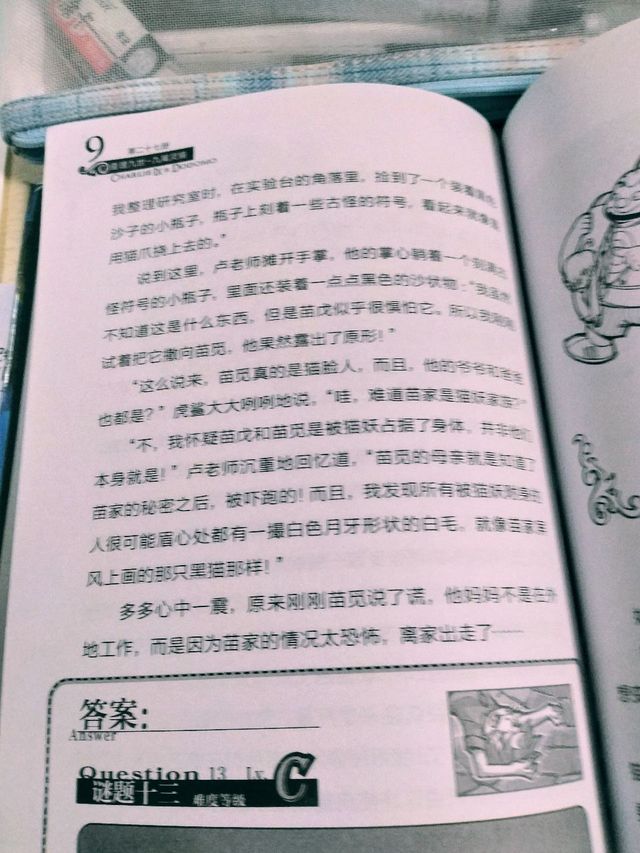 9
第二十七册
查理九世·九尾灵猫
CHARLIE IX & DODOMO
我整理研究室时，在实验台的角落里，捡到了一个装着黑色
沙子的小瓶子，瓶子上刻着一些古怪的符号，看起来就像是
用猫爪挠上去的。”
说到这里，卢老师摊开手掌，他的掌心躺着一个刻满古
怪符号的小瓶子，里面还装着一点点黑色的沙状物：“我虽然
不知道这是什么东西，但是苗戊似乎很惧怕它。所以我刚刚
试着把它撒向苗觅，他果然露出了原形！”
“这么说来，苗觅真的是猫脸人，而且，他的爷爷和爸爸
也都是？”虎鲨大大咧咧地说，“哇，难道苗家是猫妖家族？”
“不，我怀疑苗戊和苗觅是被猫妖占据了身体，并非他们
本身就是！”卢老师沉重地回忆道，“苗觅的母亲就是知道了
苗家的秘密之后，被吓跑的！而且，我发现所有被猫妖附身的
人很可能眉心处都有一撮白色月牙形状的白毛，就像苗家屏
风上画的那只黑猫那样！”
多多心中一震，原来刚刚苗觅说了谎，他妈妈不是在外
地工作，而是因为苗家的情况太恐怖，离家出走了……
答案：
Answer
Question 13 Lv. C
谜题十三 难度等级